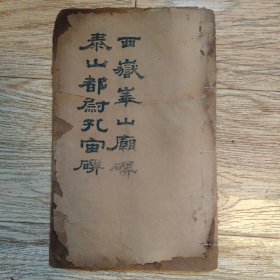 西嶽華山廟碑
泰山都尉孔宙碑